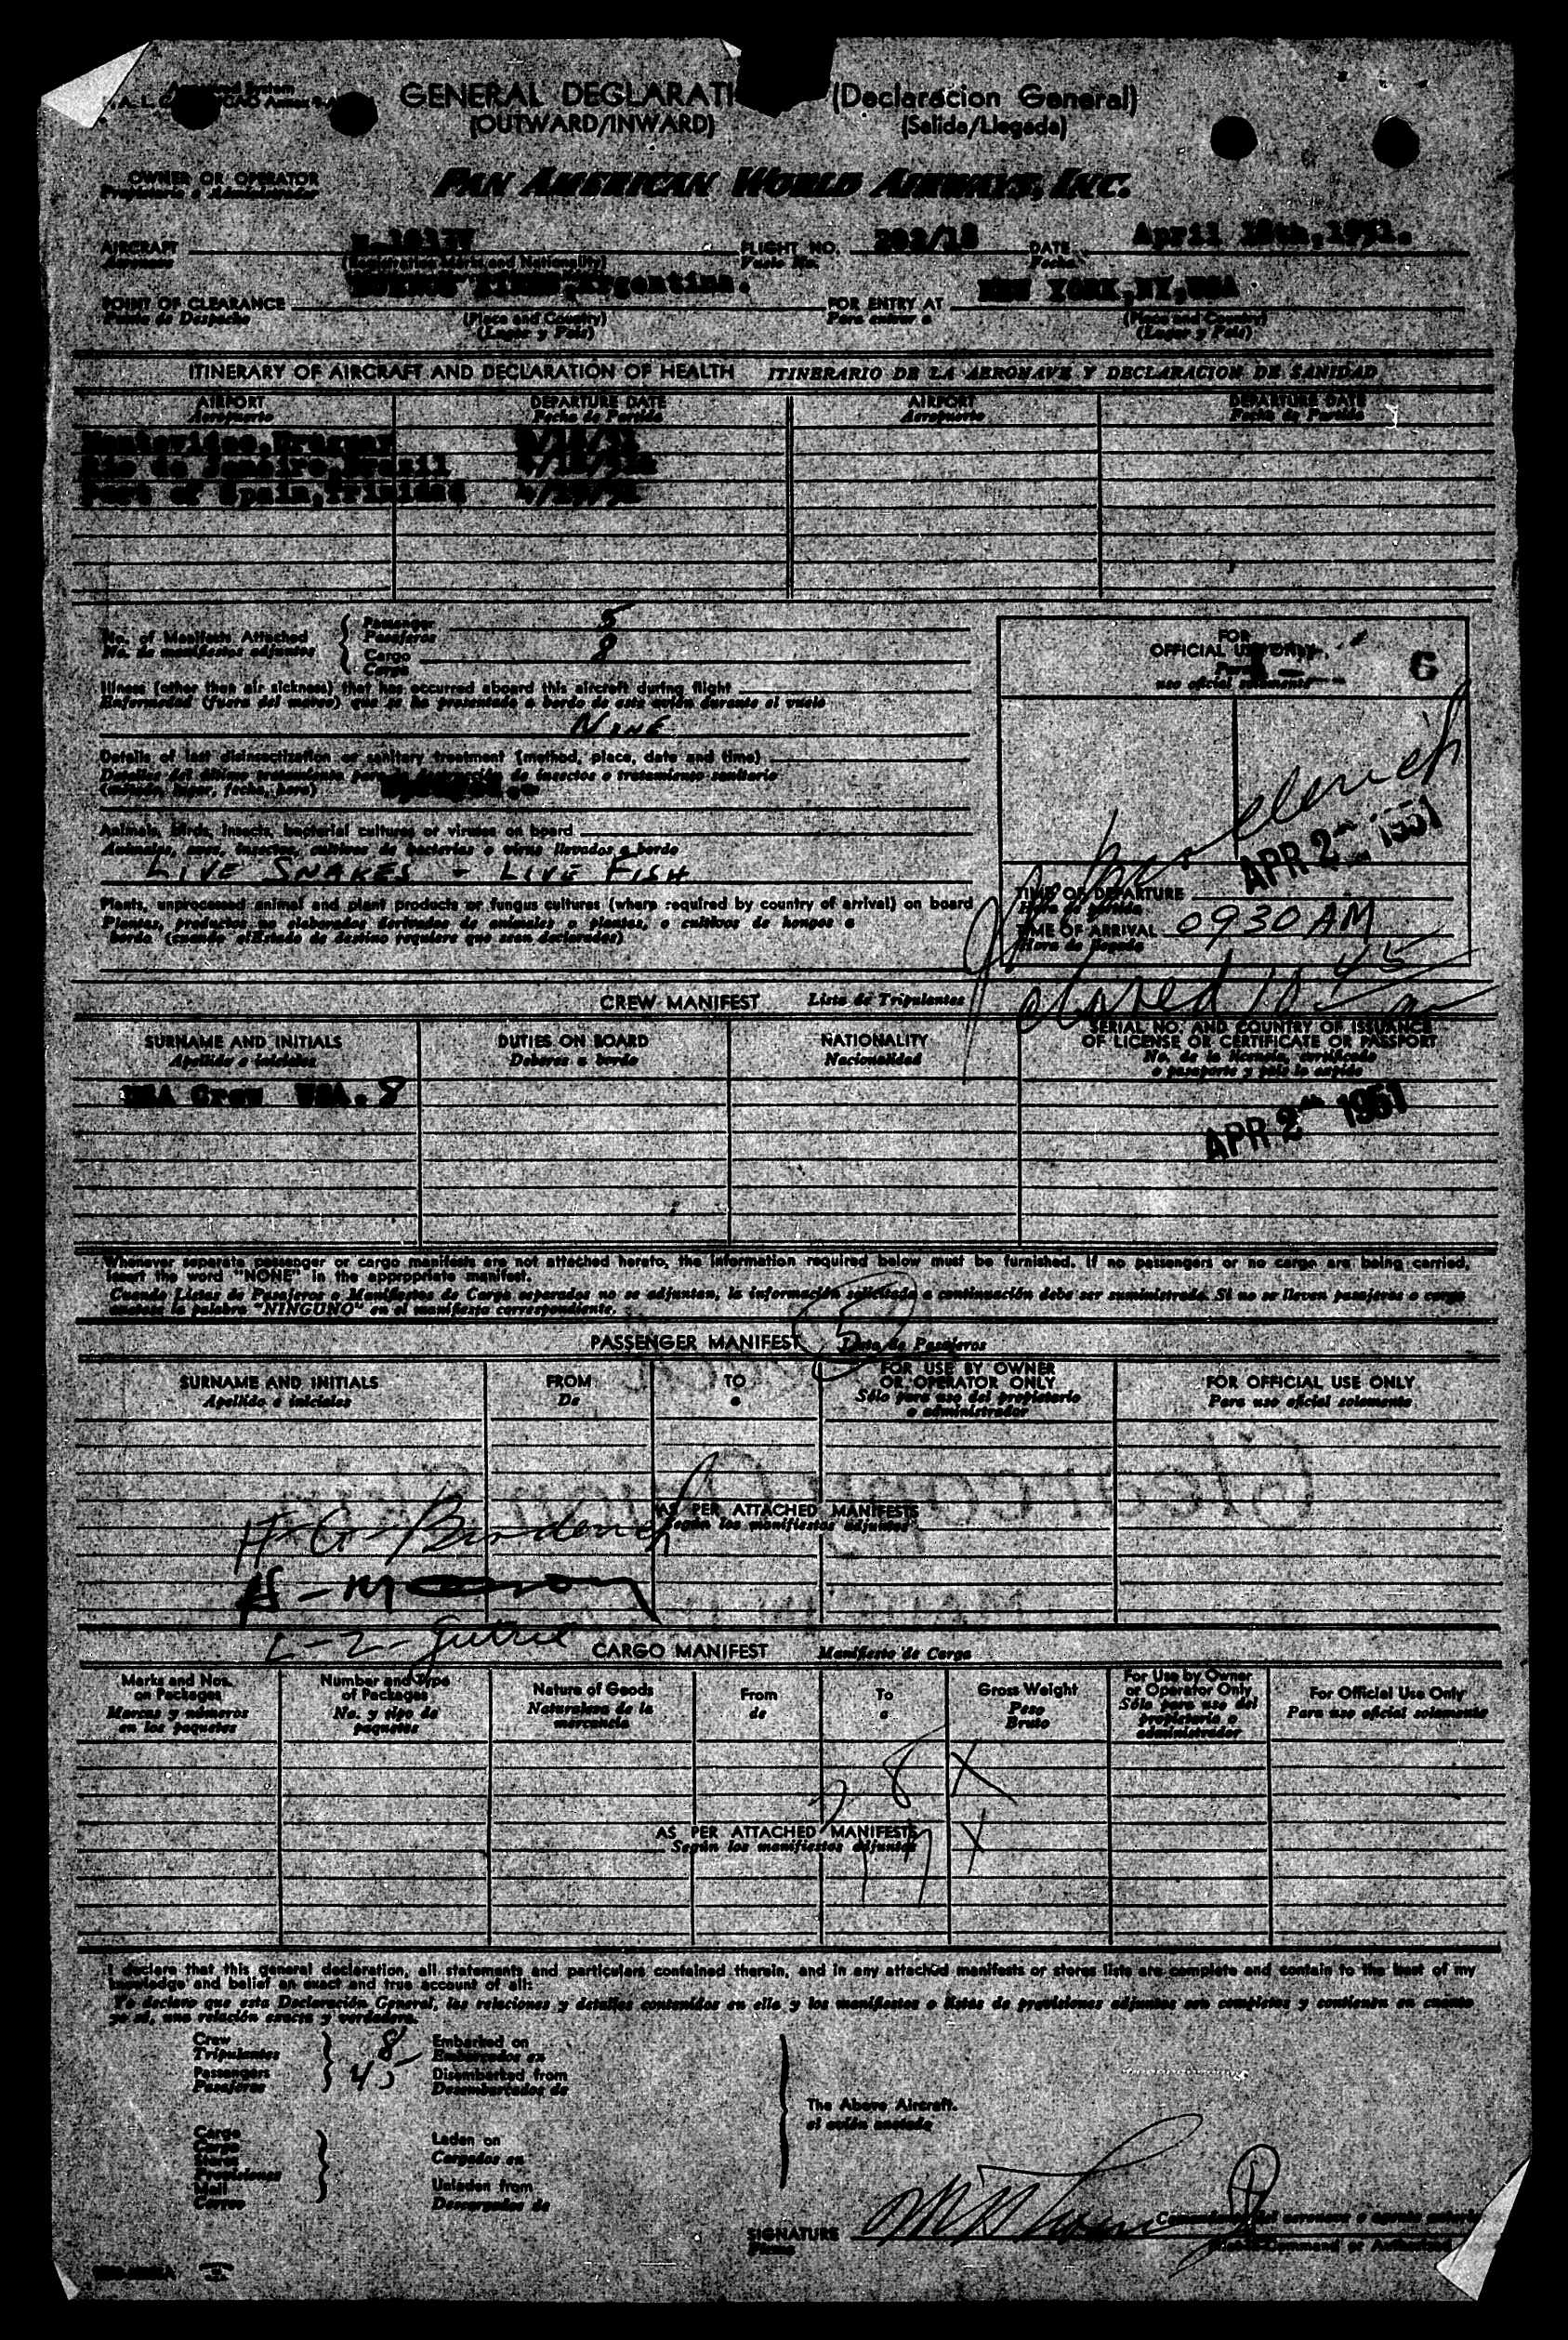 GENERAL DECLARATI (Declaracion General)
(OUTWARD/INWARD) (Salida/Llegada)
OWNER OR OPERATOR
Propietario o Administrador
PAN AMERICAN WORLD AIRWAYS, INC.
AIRCRAFT FLIGHT NO. 202/18 DATE April 18th,1951.
Aeronave (Registration Marks and Nationality) Vuelo No. Fecha
POINT OF CLEARANCE BUENOS AIRES,Argentina. FOR ENTRY AT NEW YORK,NY,USA
Punto de Despacho (Place and Country) Para entrar a (Place and Country)
(Lugar y País) (Lugar y País)
ITINERARY OF AIRCRAFT AND DECLARATION OF HEALTH ITINERARIO DE LA AERONAVE Y DECLARACION DE SANIDAD
AIRPORT DEPARTURE DATE AIRPORT DEPARTURE DATE
Aeropuerto Fecha de Partida Aeropuerto Fecha de Partida
Montevideo,Uruguay
Rio de Janeiro,Brazil
Port of Spain,Trinidad
No. of Manifests Attached
No. de manifiestos adjuntos
Passenger 5
Pasajeros
Cargo 8
Carga
FOR
OFFICIAL USE ONLY
Para
uso oficial solamente
6
Illness (other than air sickness) that has occurred aboard this aircraft during flight
Enfermedad (fuera del mareo) que se ha presentado a bordo de este avión durante el vuelo
NONE
Details of last disinsectization or sanitary treatment (method, place, date and time)
Detalles del último tratamiento para de insectos o tratamiento sanitario
(método, lugar, fecha, hora)
Animals, birds, insects, bacterial cultures or viruses on board
Animales, aves, insectos, cultivos de bacterias o virus llevados a bordo
LIVE SNAKES - LIVE FISH
APR 2 1951
Plants, unprocessed animal and plant products or fungus cultures (where required by country of arrival) on board
Plantas, productos no elaborados derivados de animales o plantas, o cultivos de hongos a
bordo (cuando el Estado de destino requiere que sean declarados)
TIME OF DEPARTURE
Hora de partida
TIME OF ARRIVAL 0930 AM
Hora de llegada
CREW MANIFEST Lista de Tripulantes
SURNAME AND INITIALS DUTIES ON BOARD NATIONALITY SERIAL NO. AND COUNTRY OF ISSUANCE
OF LICENSE OR CERTIFICATE OR PASSPORT
Apellido e iniciales Deberes a bordo Nacionalidad No. de la licencia, certificado
o pasaporte y país lo expide
USA Crew USA. 8
APR 2 1951
Whenever separate passenger or cargo manifests are not attached hereto, the information required below must be furnished. If no passengers or no cargo are being carried,
insert the word "NONE" in the appropriate manifest.
Cuando Listas de Pasajeros o Manifiestos de Carga separados no se adjuntan, la información solicitada a continuación debe ser suministrada. Si no se lleven pasajeros o carga
anótese la palabra "NINGUNO" en el manifiesto correspondiente.
5
PASSENGER MANIFEST Lista de Pasajeros
SURNAME AND INITIALS FROM TO FOR USE BY OWNER
OR OPERATOR ONLY FOR OFFICIAL USE ONLY
Apellido e iniciales De a Sólo para uso del propietario
o administrador Para uso oficial solamente
AS PER ATTACHED MANIFESTS
Según los manifiestos adjuntos
CARGO MANIFEST Manifiesto de Carga
Marks and Nos.
on Packages
Marcas y números
en los paquetes
Number and Type
of Packages
No. y tipo de
paquetes
Nature of Goods
Naturaleza de la
mercancía
From
de
To
a
Gross Weight
Peso
Bruto
For Use by Owner
or Operator Only
Sólo para uso del
propietario o
administrador
For Official Use Only
Para uso oficial solamente
AS PER ATTACHED MANIFESTS
Según los manifiestos adjuntos
I declare that this general declaration, all statements and particulars contained therein, and in any attached manifests or stores lists are complete and contain to the best of my
knowledge and belief an exact and true account of all:
Yo declaro que esta Declaración General, las relaciones y detalles contenidos en ella y los manifiestos o listas de provisiones adjuntos son completos y contienen en cuanto
yo sé, una relación exacta y verdadera.
Crew 8 Embarked on
Tripulantes Embarcados en
Passengers 45 Disembarked from
Pasajeros Desembarcados de
The Above Aircraft.
el avión anotado
Cargo Laden on
Carga Cargados en
Stores
Provisiones
Mail Unladen from
Correo Descargados de
SIGNATURE
Firma